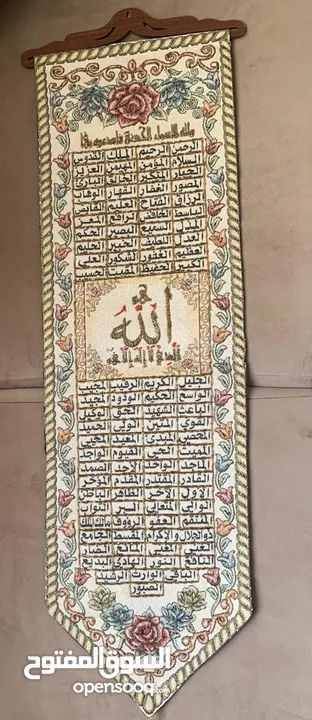 ولله الاسماء الحسنى فادعوه بها
الرحمن الرحيم الملك القدوس
السلام المؤمن المهيمن العزيز
الجبار المتكبر الخالق الباري
المصور الغفار القهار الوهاب
الرزاق الفتاح العليم القابض
الباسط الخافض الرافع المعز
المذل السميع البصير الحكم
العدل اللطيف الخبير الحليم
العظيم الغفور الشكور العلي
الكبير الحفيظ المقيت الحسيب
هو
الله
الذي لا إله إلا هو
الجليل الكريم الرقيب المجيب
الواسع الحكيم الودود المجيد
الباعث الشهيد الحق الوكيل
القوي المتين الولي الحميد
المحصي المبدي المعيد المحيي
المميت الحي القيوم الواجد
الماجد الواحد الاحد الصمد
القادر المقتدر المقدم المؤخر
الاول الاخر الظاهر الباطن
الوالي المتعالي البر التواب
المنتقم العفو الرؤوف مالك الملك
ذو الجلال والاكرام المقسط الجامع
الغني المغني المانع الضار
النافع النور الهادي البديع
الباقي الوارث الرشيد
الصبور
السوق المفتوح
opensooq.com